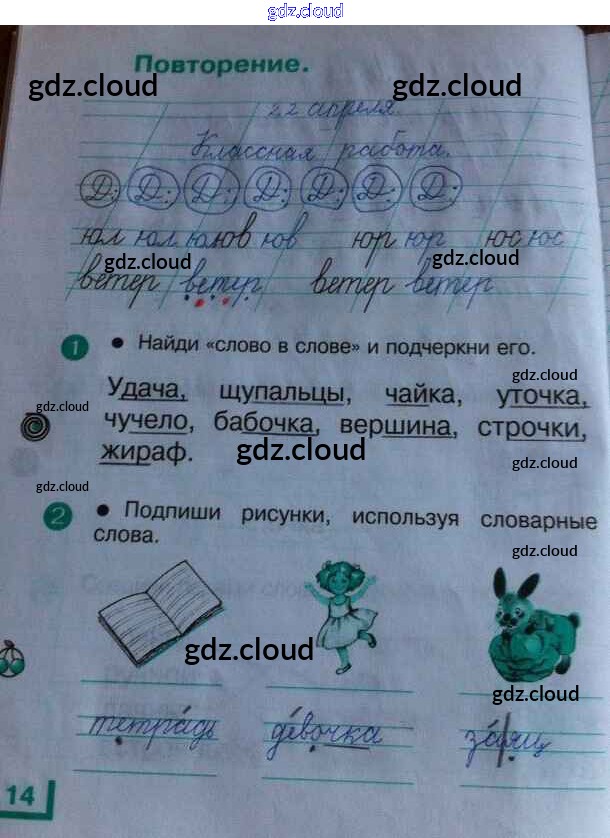 gdz.cloud
Повторение.
gdz.cloud gdz.cloud
22 апреля.
Классная работа.
Д: Д: Д: Д: Д: Д: Д:
юл юл юлюв юв юр юр юс юс
gdz.cloud gdz.cloud
ветер ветер ветер ветер
1 • Найди «слово в слове» и подчеркни его.
gdz.cloud
Удача, щупальцы, чайка, уточка,
gdz.cloud
чучело, бабочка, вершина, строчки,
gdz.cloud gdz.cloud
жираф.
gdz.cloud gdz.cloud
2 • Подпиши рисунки, используя словарные
слова.
gdz.cloud
gdz.cloud
gdz.cloud
тетрадь девочка заяц
14